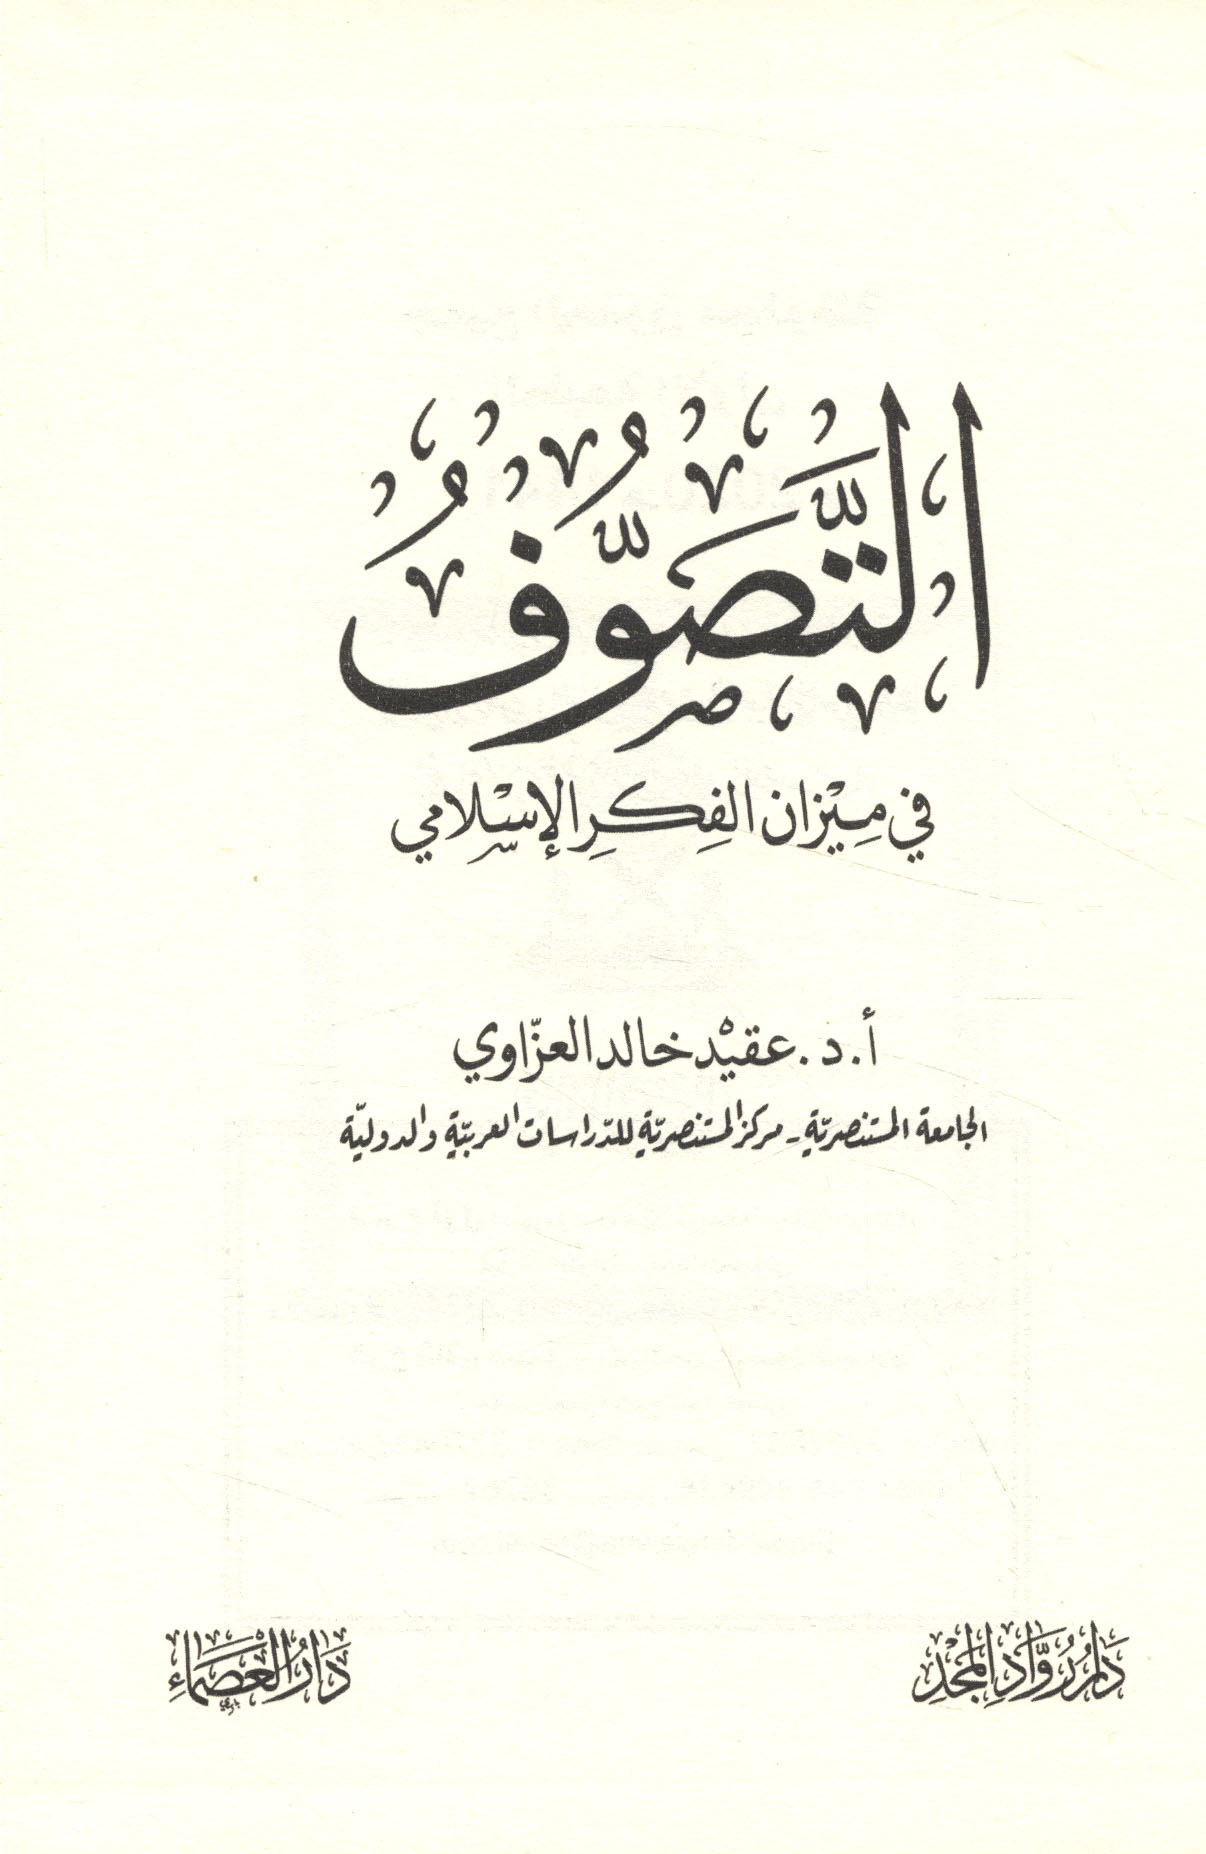 التَّصَوُّفُ
في مِيْزان الفِكرِ الإسْلامي
أ.د. عقيْد خالد العزّاوي
الجامعة المستنصريّة - مركز المستنصريّة للدّراسات العربيّة والدوليّة
دَارُ رُوَّادِ المَجْدِ
دَارُ العَصْمَاءِ